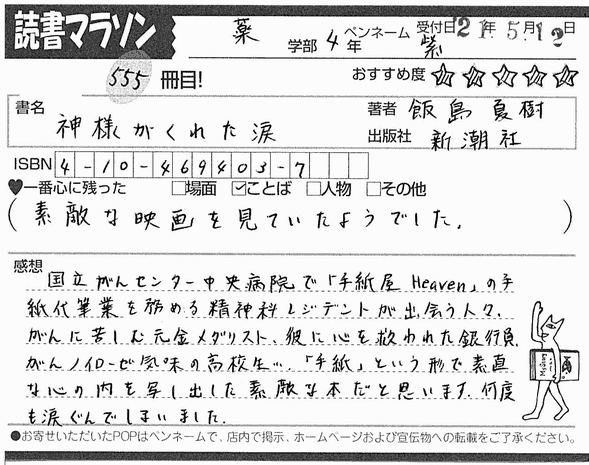 読書マラソン
薬学部4年
ペンネーム 紫
受付日 21年5月12日
555冊目!
おすすめ度 ☆☆☆☆☆
書名 神様がくれた涙
著者 飯島夏樹
出版社 新潮社
ISBN 4-10-469403-7
♥一番心に残った □場面 ☑ことば □人物 □その他
(素敵な映画を見ていたようでした。)
感想
国立がんセンター中央病院で「手紙屋 Heaven」の手
紙代筆業を務める精神科レジデントが出会う人々。
がんに苦しむ元金メダリスト、彼に心を救われた銀行員、
がんノイローゼ気味の高校生…。「手紙」という形で素直
な心の内を写し出した素敵な本だと思います。何度
も涙ぐんでしまいました。
●お寄せいただいたPOPはペンネームで、店内で掲示、ホームページおよび宣伝物への転載をご了承ください。